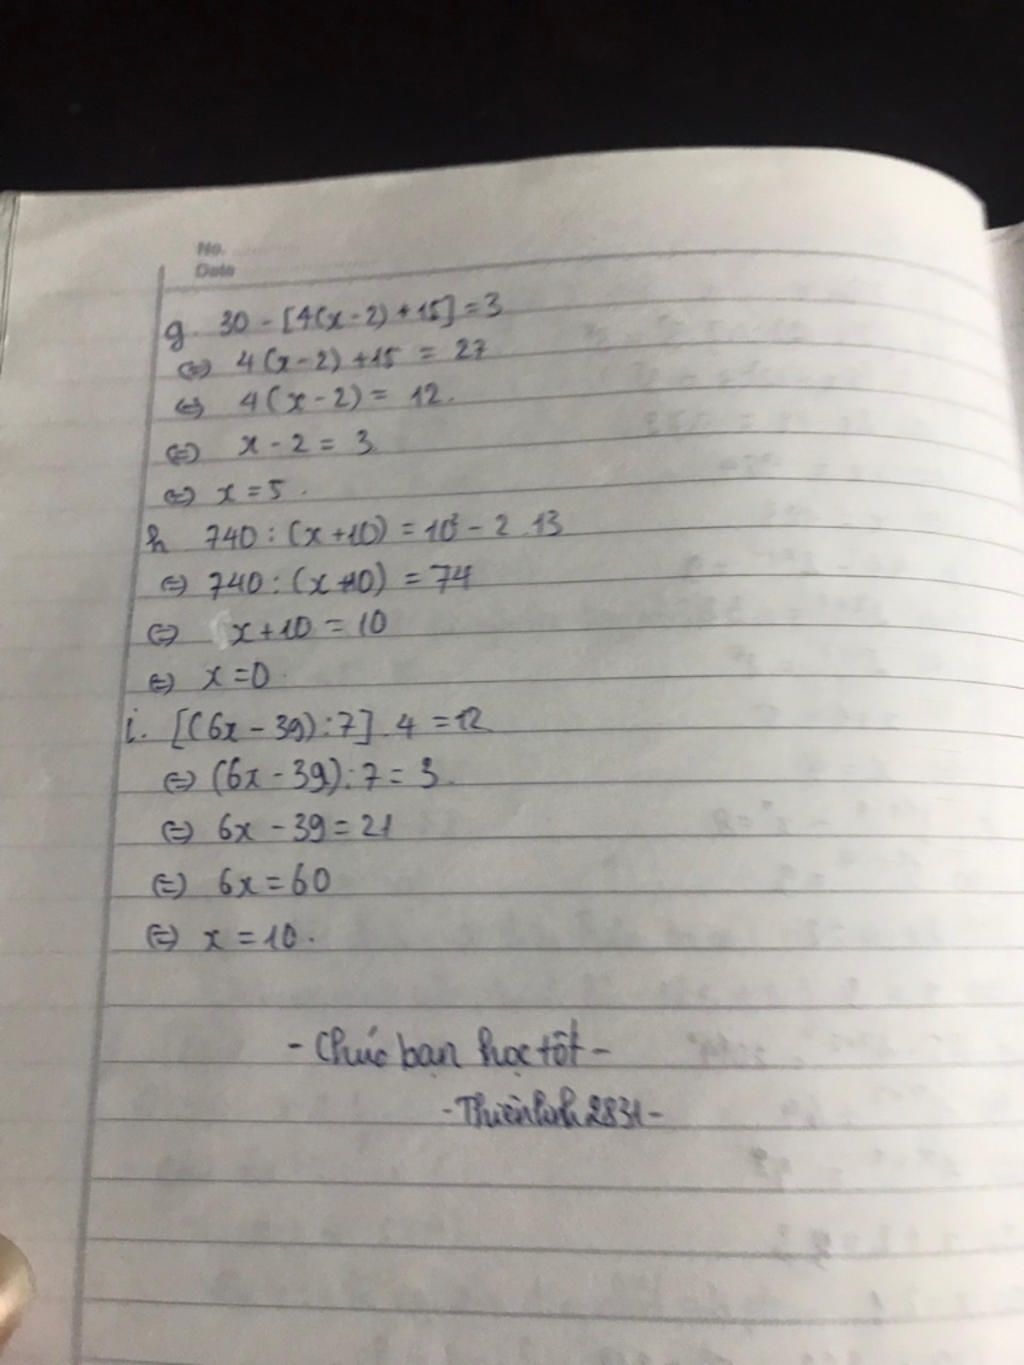 No.
Date
g. 30 - [4(x-2)+15] = 3
⇔ 4(x-2)+15 = 27
⇔ 4(x-2) = 12.
⇔ x - 2 = 3
⇔ x = 5.
h 740 : (x+10) = 10² - 2.13
⇔ 740 : (x+10) = 74
⇔ x+10 = 10
⇔ x = 0.
i. [(6x - 39) : 7] . 4 = 12
⇔ (6x - 39) : 7 = 3.
⇔ 6x - 39 = 21
⇔ 6x = 60
⇔ x = 10.
- Chúc bạn học tốt -
- Thiênlinh2831 -